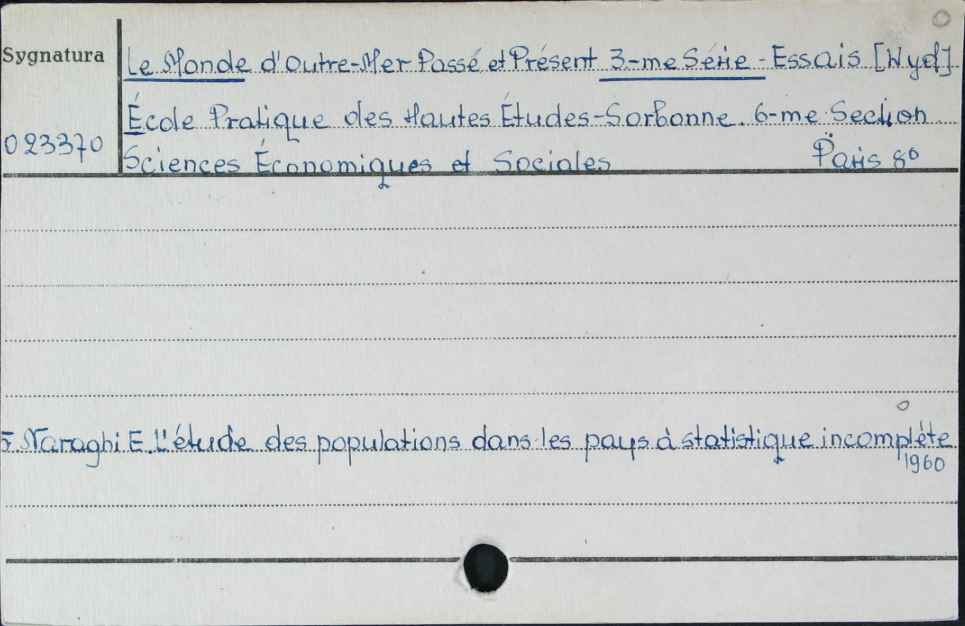 Sygnatura
Le Monde d'Outre-Mer Passé et Présent 3-me Série - Essais [Wyd]
École Pratique des Hautes Études-Sorbonne. 6-me Section
023370
Sciences Économiques et Sociales Paris 8°
5. Naraghi E. L'étude des populations dans les pays à statistique incomplète
1960